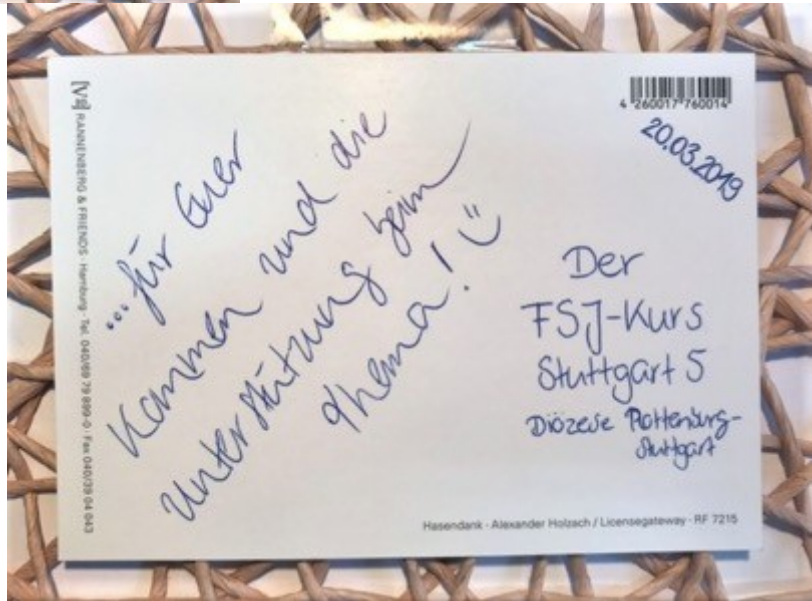 [V°] RANNENBERG & FRIENDS · Hamburg · Tel. 040/69 79 899-0 · Fax 040/39 04 043
4 260017 760014
20.03.2019
...für Euer
Kommen und die
Unterstützung beim
Thema! :)
Der
FSJ-Kurs
Stuttgart 5
Diözese Rottenburg-
Stuttgart
Hasendank · Alexander Holzach / Licensegateway · RF 7215